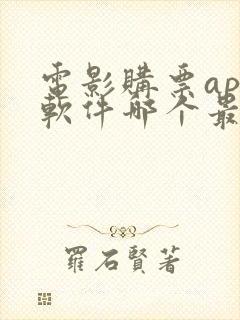 電影購票ap
軟件哪个最
羅石賢著